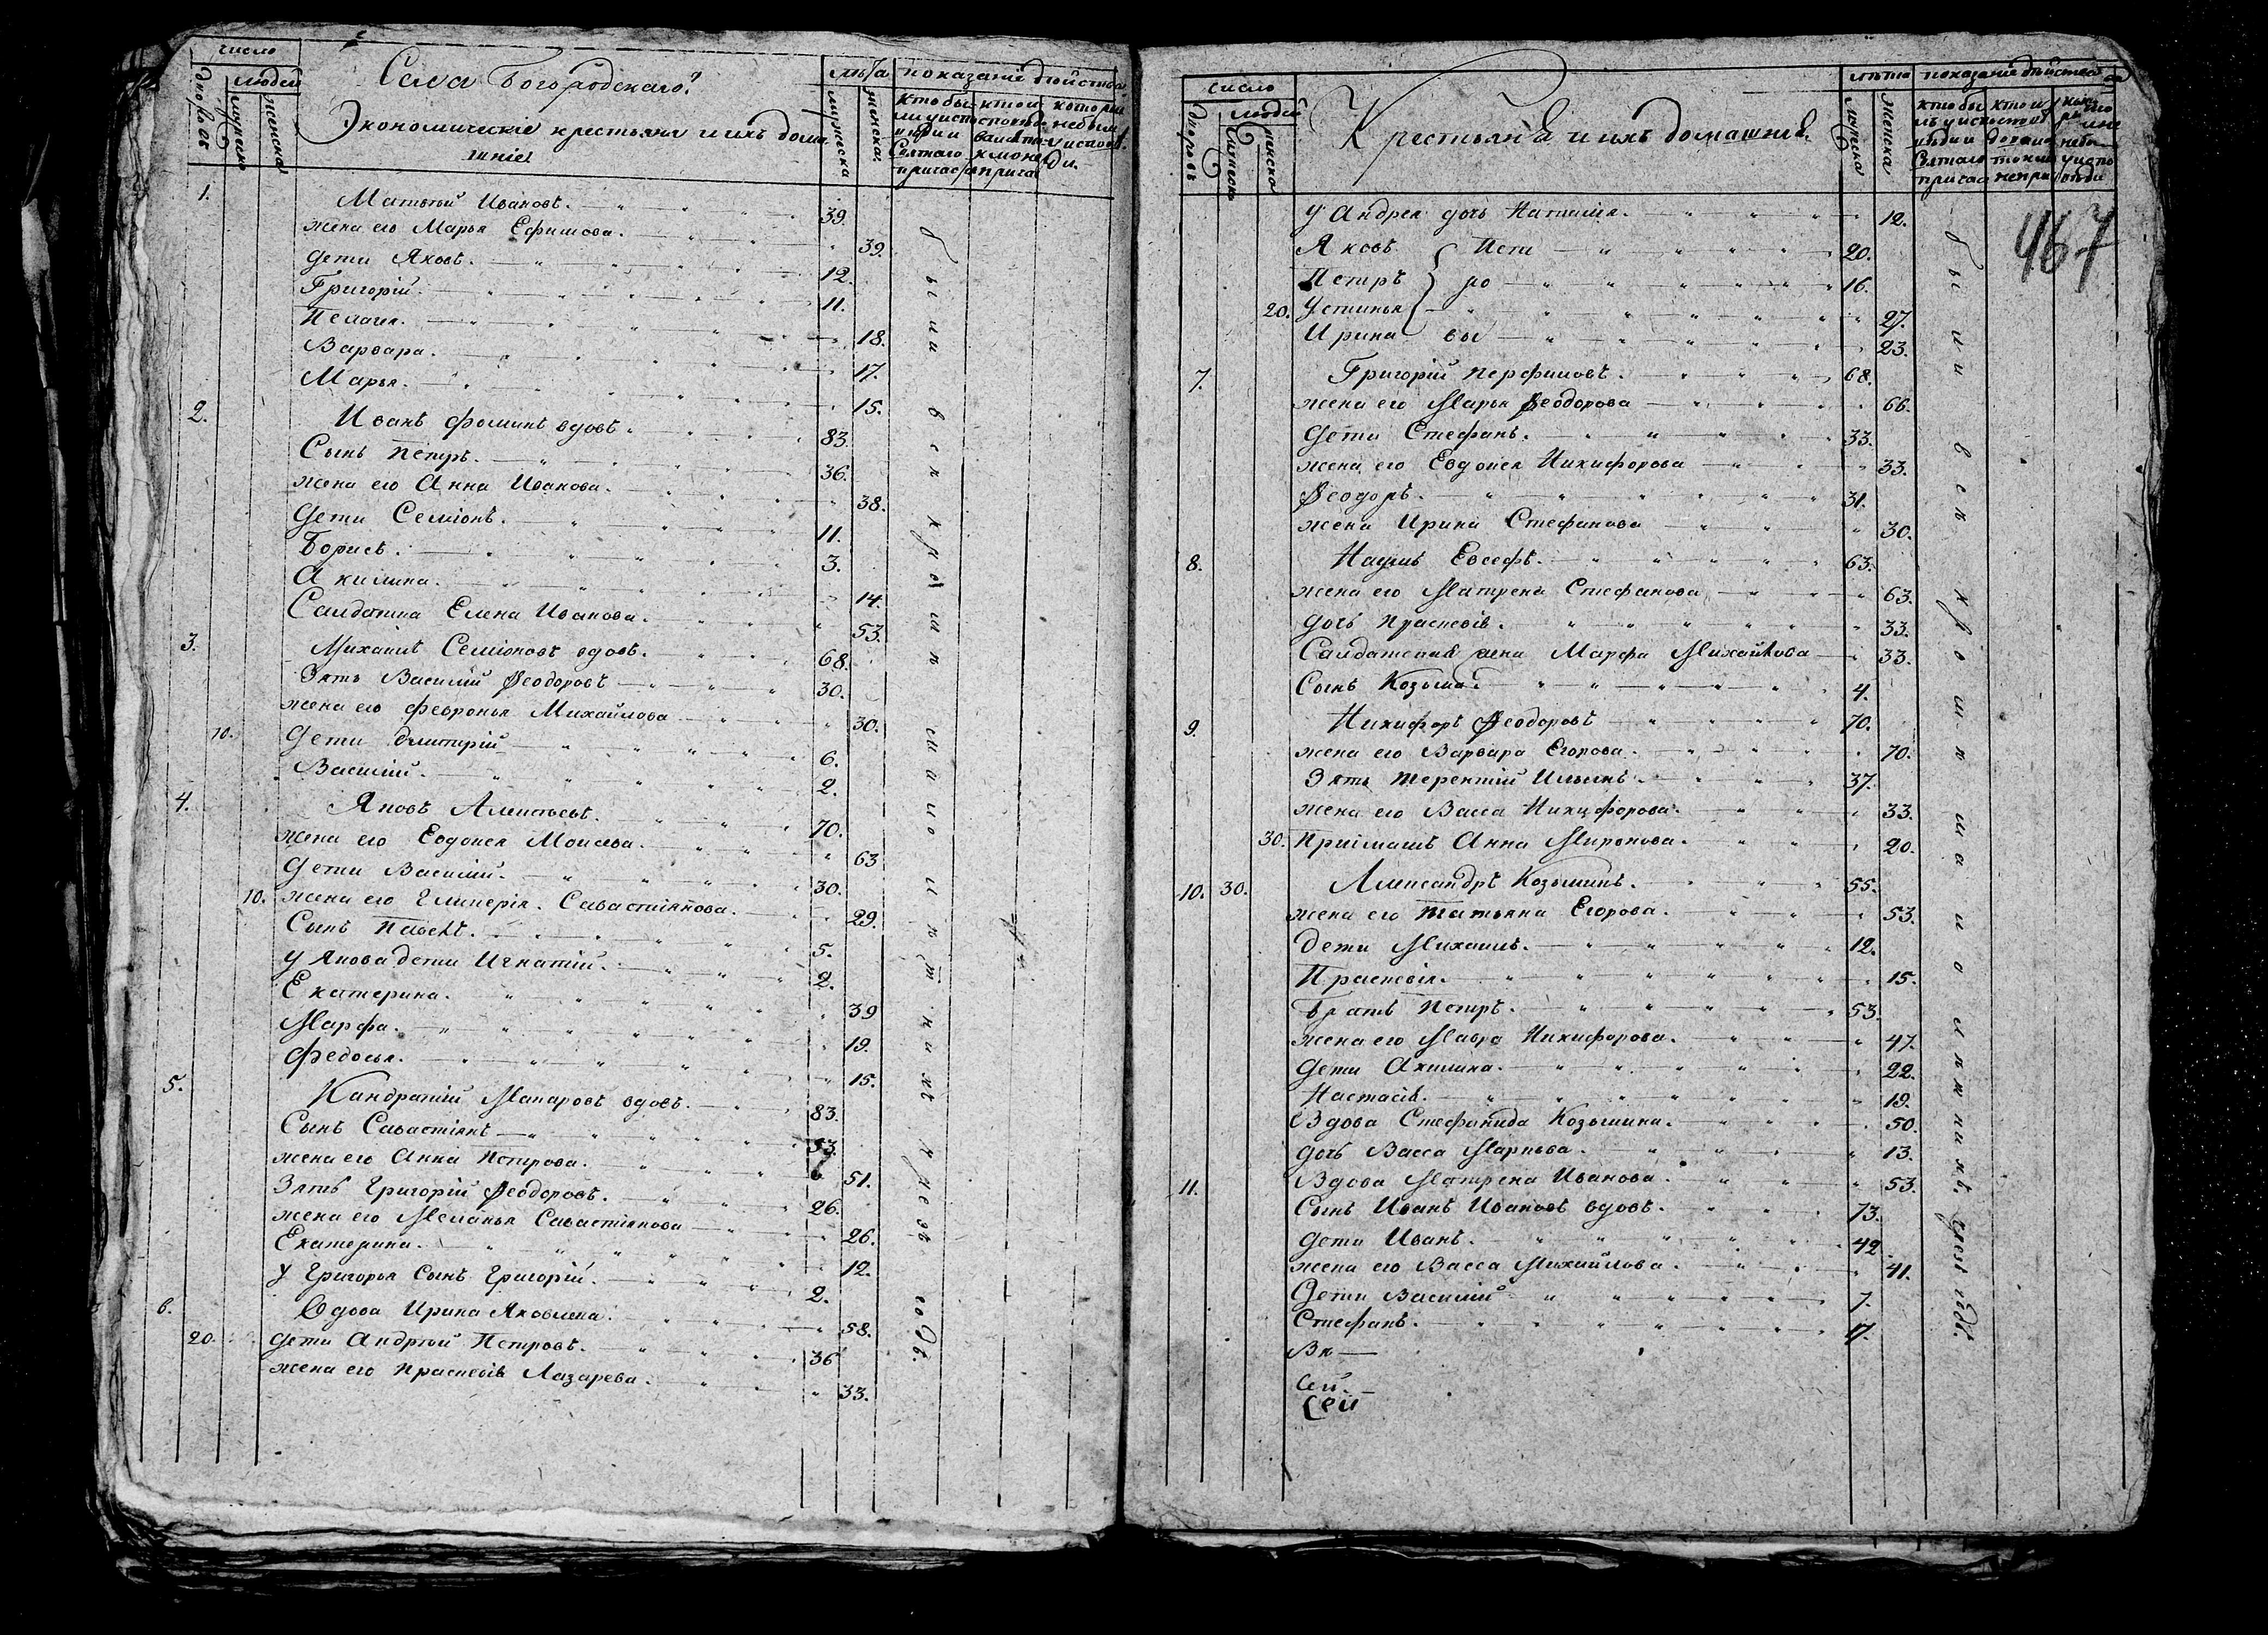 число
людей
дворовъ
мужеска
женска
Села Богородскаго
Экономическіе крестьяне и ихъ дома
шніе
лѣта
мужеска
женска
показаніе дѣйства
кто бы
ли у испо
вѣди и
Святаго
причас
кто и
которы
не были
у исповѣ
ди
1. Матвѣй Ивановъ. 39.
жена его Марья Ефимова. 39.
дети Яковъ. 12.
Григорій. 11.
Пелагея. 18.
Варвара. 17.
Марья. 15.
2. Иванъ Фоминъ вдовъ. 83.
Сынъ Петръ. 36.
жена его Анна Иванова. 38.
дети Семіонъ. 11.
Борисъ. 3.
Акилина. 14.
Салдатка Елена Иванова. 53.
3. Михаилъ Семіоновъ вдовъ. 68.
Зять Василій Ѳеодоровъ 30.
жена его Февронья Михайлова 30.
10. дети Дмитрій 6.
Василій. 2.
4. Яковъ Алентьевъ. 70.
жена его Евдокея Моисева. 63
дети Василій. 30.
10. жена его Гликерія. Савастіянова. 29.
Сынъ Павелъ. 5.
у Якова дети Игнатій. 2.
Екатерина. 39
Марфа. 19.
Федосья. 15.
5. Кандратій Макаровъ вдовъ. 83.
Сынъ Савастіянъ 53.
жена его Анна Петрова. 51.
Зять Григорій Ѳеодоровъ. 26.
жена его Меланья Савастіянова 26.
Екатерина. 12.
у Григорья Сынъ Григорій. 2.
6. Вдова Ирина Яковлева. 58.
20. дети Андрѣй Петровъ. 36
жена его Праскевія Лазарева. 33.
были вси кромѣ малолѣтнихъ чрезъ годъ.
число
людей
дворовъ
мужеска
женска
Крестьяне и ихъ домашніе.
лѣта
мужеска
женска
показаніе дѣйства
кто бы
лъ у испо
вѣди и
Святаго
причас
кто и
не при
кои
не бы
у испо
вѣди
467
у Андрея дочь Наталия. 12.
Яковъ Пети 20.
Петръ ро 16.
20. Устинья 27.
Ирина вы 23.
7. Григорій Перфиловъ. 68.
жена его Марья Ѳеодорова 66.
дети Стефанъ. 33.
жена его Евдокея Никифорова 33.
Ѳеодоръ. 31.
жена Ирина Стефанова 30.
8. Наумъ Евсефъ. 63.
жена его Матрена Стефанова 63.
дочь Праскевія. 33.
Салдатская жена Марфа Михайлова 33.
Сынъ Козьма. 4.
9. Никифоръ Ѳеодоровъ 70.
жена его Варвара Егорова. 70.
Зять Терентій Ильинъ. 37.
жена его Васса Никифорова. 33.
30. Пріімашъ Анна Миронова. 20.
10. 30. Александръ Козьминъ. 55.
жена его Татьяна Егорова. 53.
Дети Михаилъ. 12.
Праскевія. 15.
Братъ Петръ. 53.
жена его Мавра Никифорова. 47.
дети Акилина. 22.
Настасія. 19.
Вдова Стефанида Козьмина. 50.
дочь Васса Маркова. 13.
11. Вдова Матрена Иванова. 53.
Сынъ Иванъ Ивановъ вдовъ. 73.
дети Иванъ. 42
жена его Васса Михайлова. 41.
Дети Василий 7.
Стефанъ. 17.
Ва
Сей.
Сей
были вси кромѣ малолѣтнихъ. чрезъ годъ.